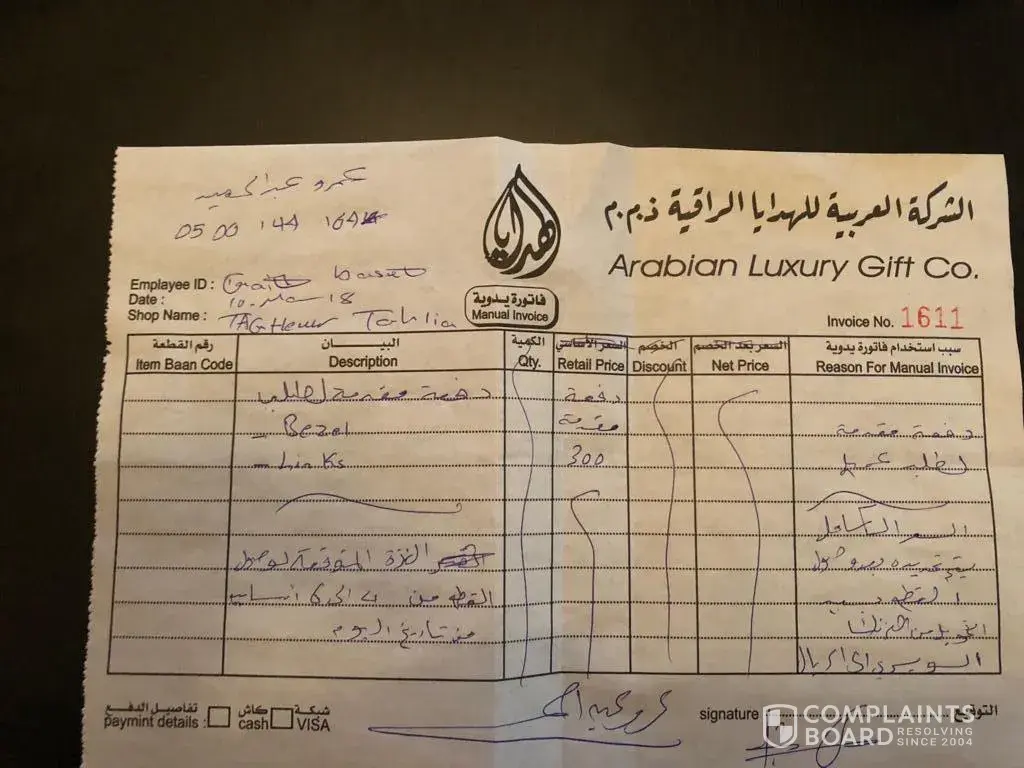 عمرو عبدالحميد
0500 144 1644
الهدايا
الشركة العربية للهدايا الراقية ذ.م.م
Arabian Luxury Gift Co.
Employee ID :
Date : 10- - 18
Shop Name : TAGHeuer Tahlia
فاتورة يدوية
Manual Invoice
Invoice No. 1611
رقم القطعة البيـــــان الكمية السعر الأساسي الخصم السعر بعد الخصم سبب استخدام فاتورة يدوية
Item Baan Code Description Qty. Retail Price Discount Net Price Reason For Manual Invoice
دفعة مقدمة لطلب دفعة
- Bezel مقدمة دفعة مقدمة
- Links 300 لطلب
السعر الكامل
الفترة المتوقعة لوصول يتم تحديده بعد وصول
القطع من 4 الى 6 أسابيع القطع حسب
من تاريخ اليوم التحويل من الفرنك
السويسري الى الريال
تفاصيل الدفع كاش شبكة
paymint details : cash VISA
signature التوقيع
COMPLAINTS
BOARD RESOLVING
SINCE 2004